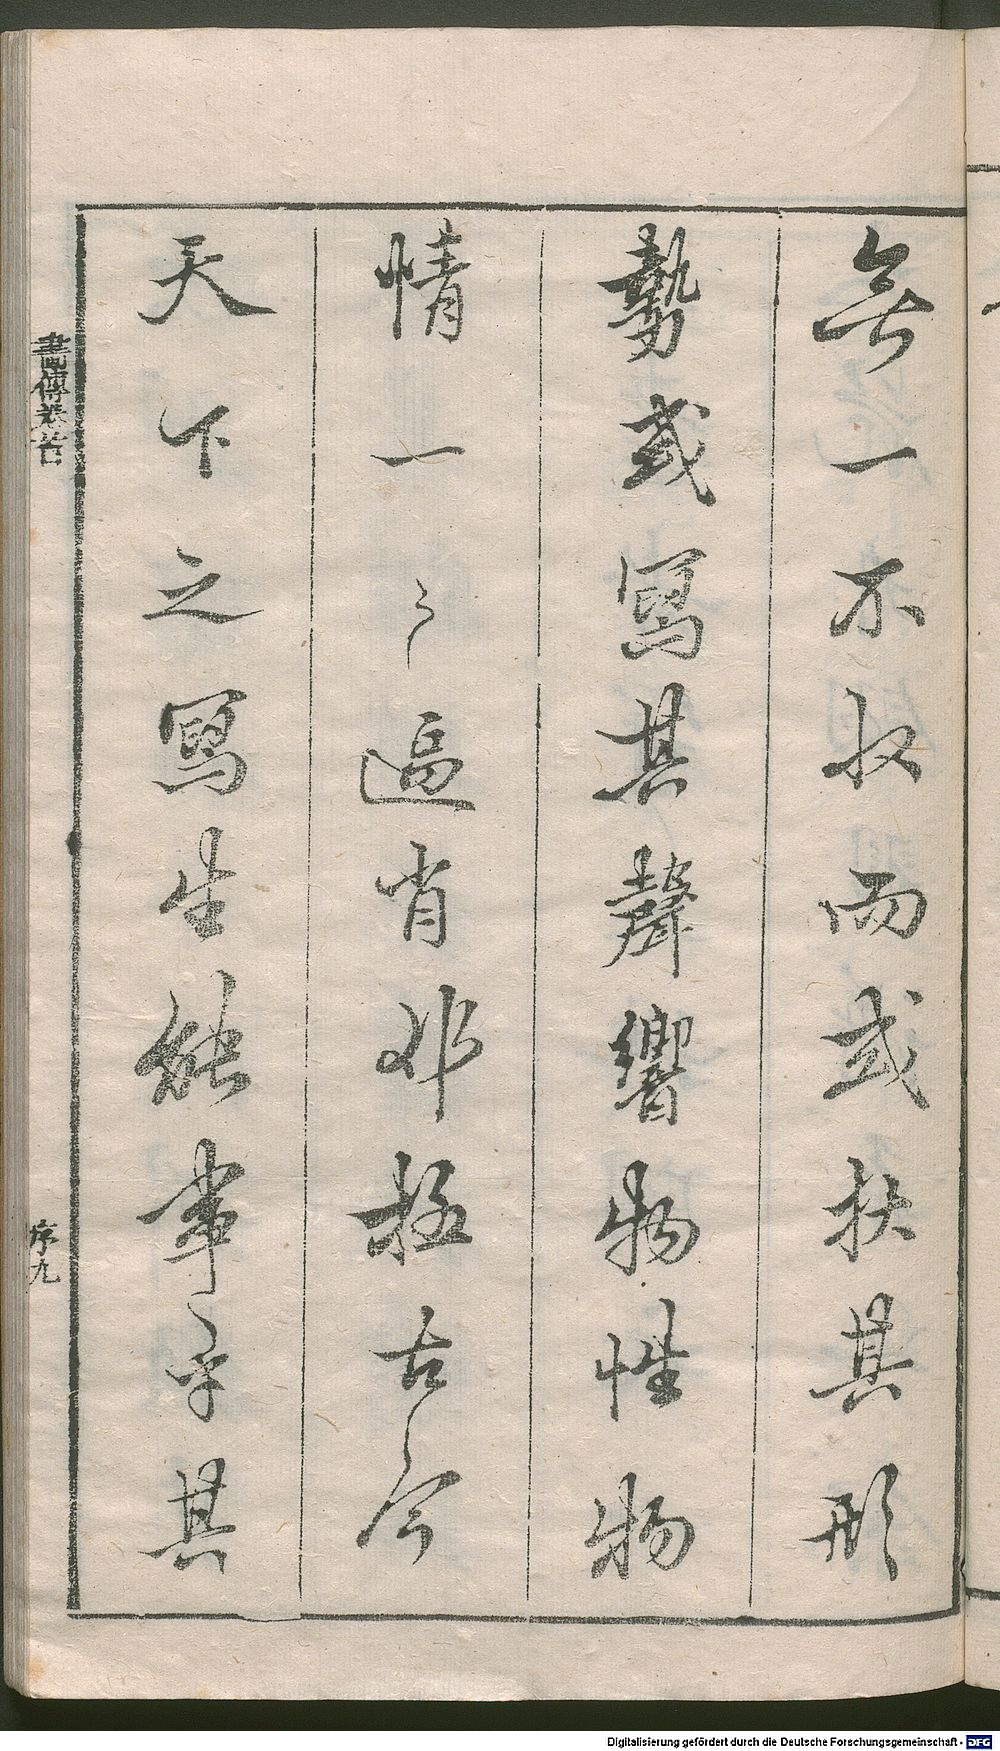 無一不收而或狀其形
勢或寫其聲響物性物
情一〻逼肖非極古今
天下之寫生能事乎其
畫傳卷首
序九
Digitalisierung gefördert durch die Deutsche Forschungsgemeinschaft - DFG